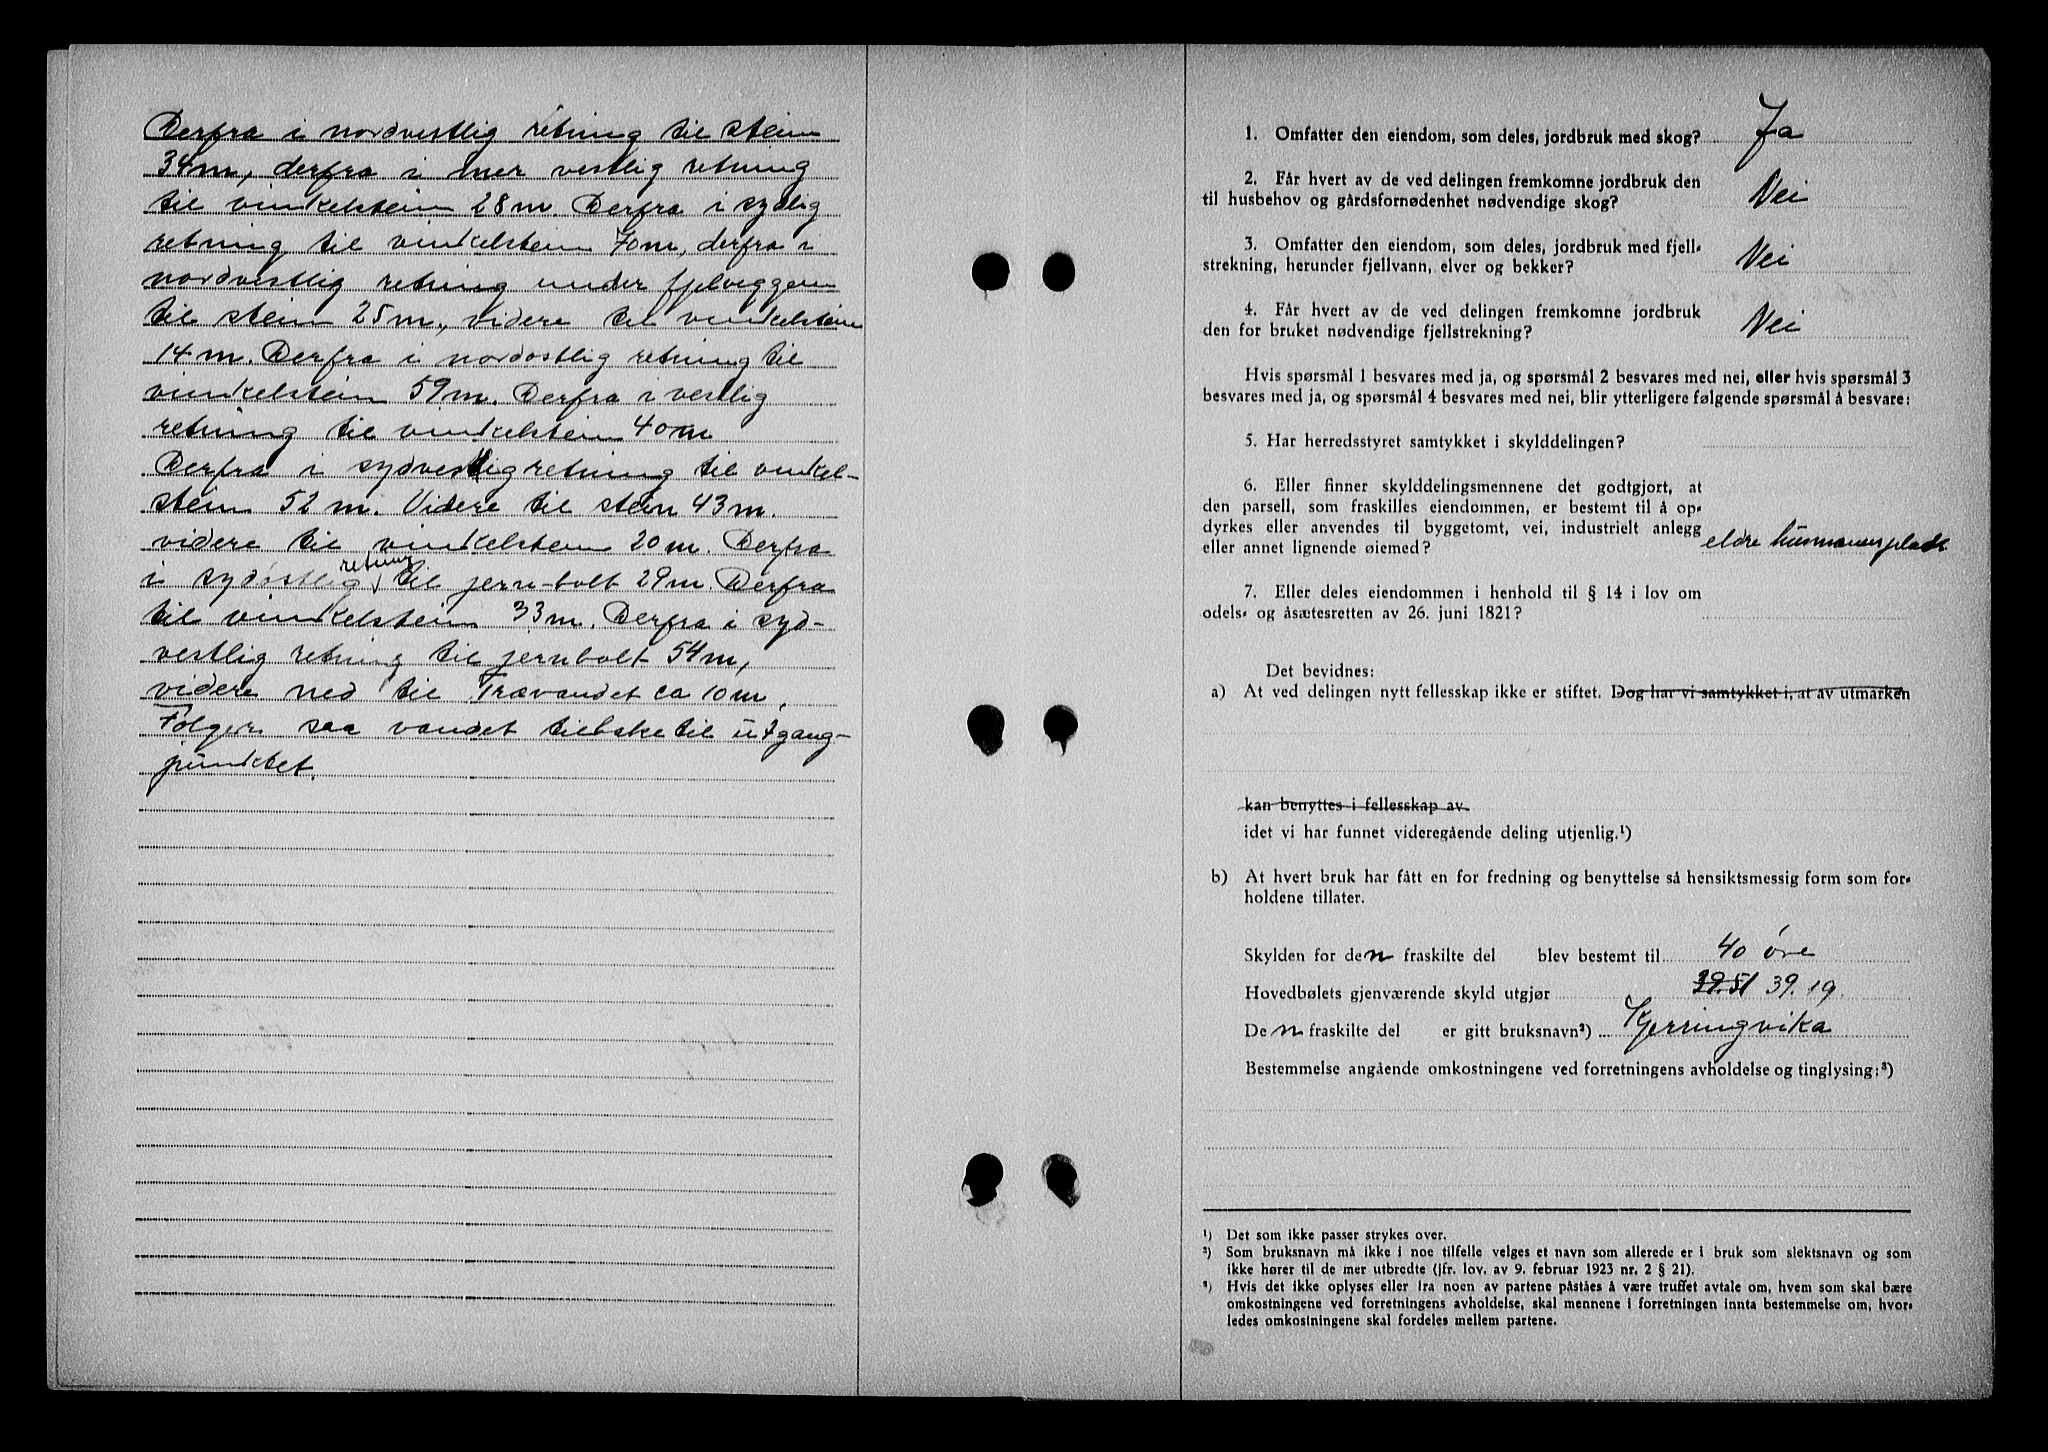 Derfra i nordvestlig retning til stein
34m, derfra i mer vestlig retning
til vinkelstein 28m. Derfra i sydlig
retning til vinkelstein 70m, derfra i
nordvestlig retning under fjelveggen
til stein 25m, videre til vinkelstein
14m. Derfra i nordostlig retning til
vinkelstein 59m. Derfra i vestlig
retning til vinkelstein 40m
Derfra i sydvestlig retning til vinkel-
stein 52 m. Videre til stein 43m.
videre til vinkelstein 20m. Derfra
i sydøstlig retning til jern-bolt 29m. Derfra
til vinkelstein 33m. Derfra i syd-
vestlig retning til jernbolt 54m,
videre ned til Trævandet ca 10m,
Følger saa vandet tilbake til utgang-
punktet.
1. Omfatter den eiendom, som deles, jordbruk med skog? Ja
2. Får hvert av de ved delingen fremkomne jordbruk den
til husbehov og gårdsfornødenhet nødvendige skog? Nei
3. Omfatter den eiendom, som deles, jordbruk med fjell-
strekning, herunder fjellvann, elver og bekker? Nei
4. Får hvert av de ved delingen fremkomne jordbruk
den for bruket nødvendige fjellstrekning? Nei
Hvis spørsmål 1 besvares med ja, og spørsmål 2 besvares med nei, eller hvis spørsmål 3
besvares med ja, og spørsmål 4 besvares med nei, blir ytterligere følgende spørsmål å besvare:
5. Har herredsstyret samtykket i skylddelingen?
6. Eller finner skylddelingsmennene det godtgjort, at
den parsell, som fraskilles eiendommen, er bestemt til å op-
dyrkes eller anvendes til byggetomt, vei, industrielt anlegg
eller annet lignende øiemed? eldre husmannsplads
7. Eller deles eiendommen i henhold til § 14 i lov om
odels- og åsætesretten av 26. juni 1821?
Det bevidnes:
a) At ved delingen nytt fellesskap ikke er stiftet. Dog har vi samtykket i, at av utmarken
kan benyttes i fellesskap av
idet vi har funnet videregående deling utjenlig.¹)
b) At hvert bruk har fått en for fredning og benyttelse så hensiktsmessig form som for-
holdene tillater.
Skylden for den fraskilte del blev bestemt til 40 øre
Hovedbølets gjenværende skyld utgjør 39.51 39.19.
Den fraskilte del er gitt bruksnavn²) Kjerringvika
Bestemmelse angående omkostningene ved forretningens avholdelse og tinglysing:³)
¹) Det som ikke passer strykes over.
²) Som bruksnavn må ikke i noe tilfelle velges et navn som allerede er i bruk som slektsnavn og som
ikke hører til de mer utbredte (jfr. lov. av 9. februar 1923 nr. 2 § 21).
³) Hvis det ikke oplyses eller fra noen av partene påståes å være truffet avtale om, hvem som skal bære
omkostningene ved forretningens avholdelse, skal mennene i forretningen innta bestemmelse om, hvor-
ledes omkostningene skal fordeles mellem partene.